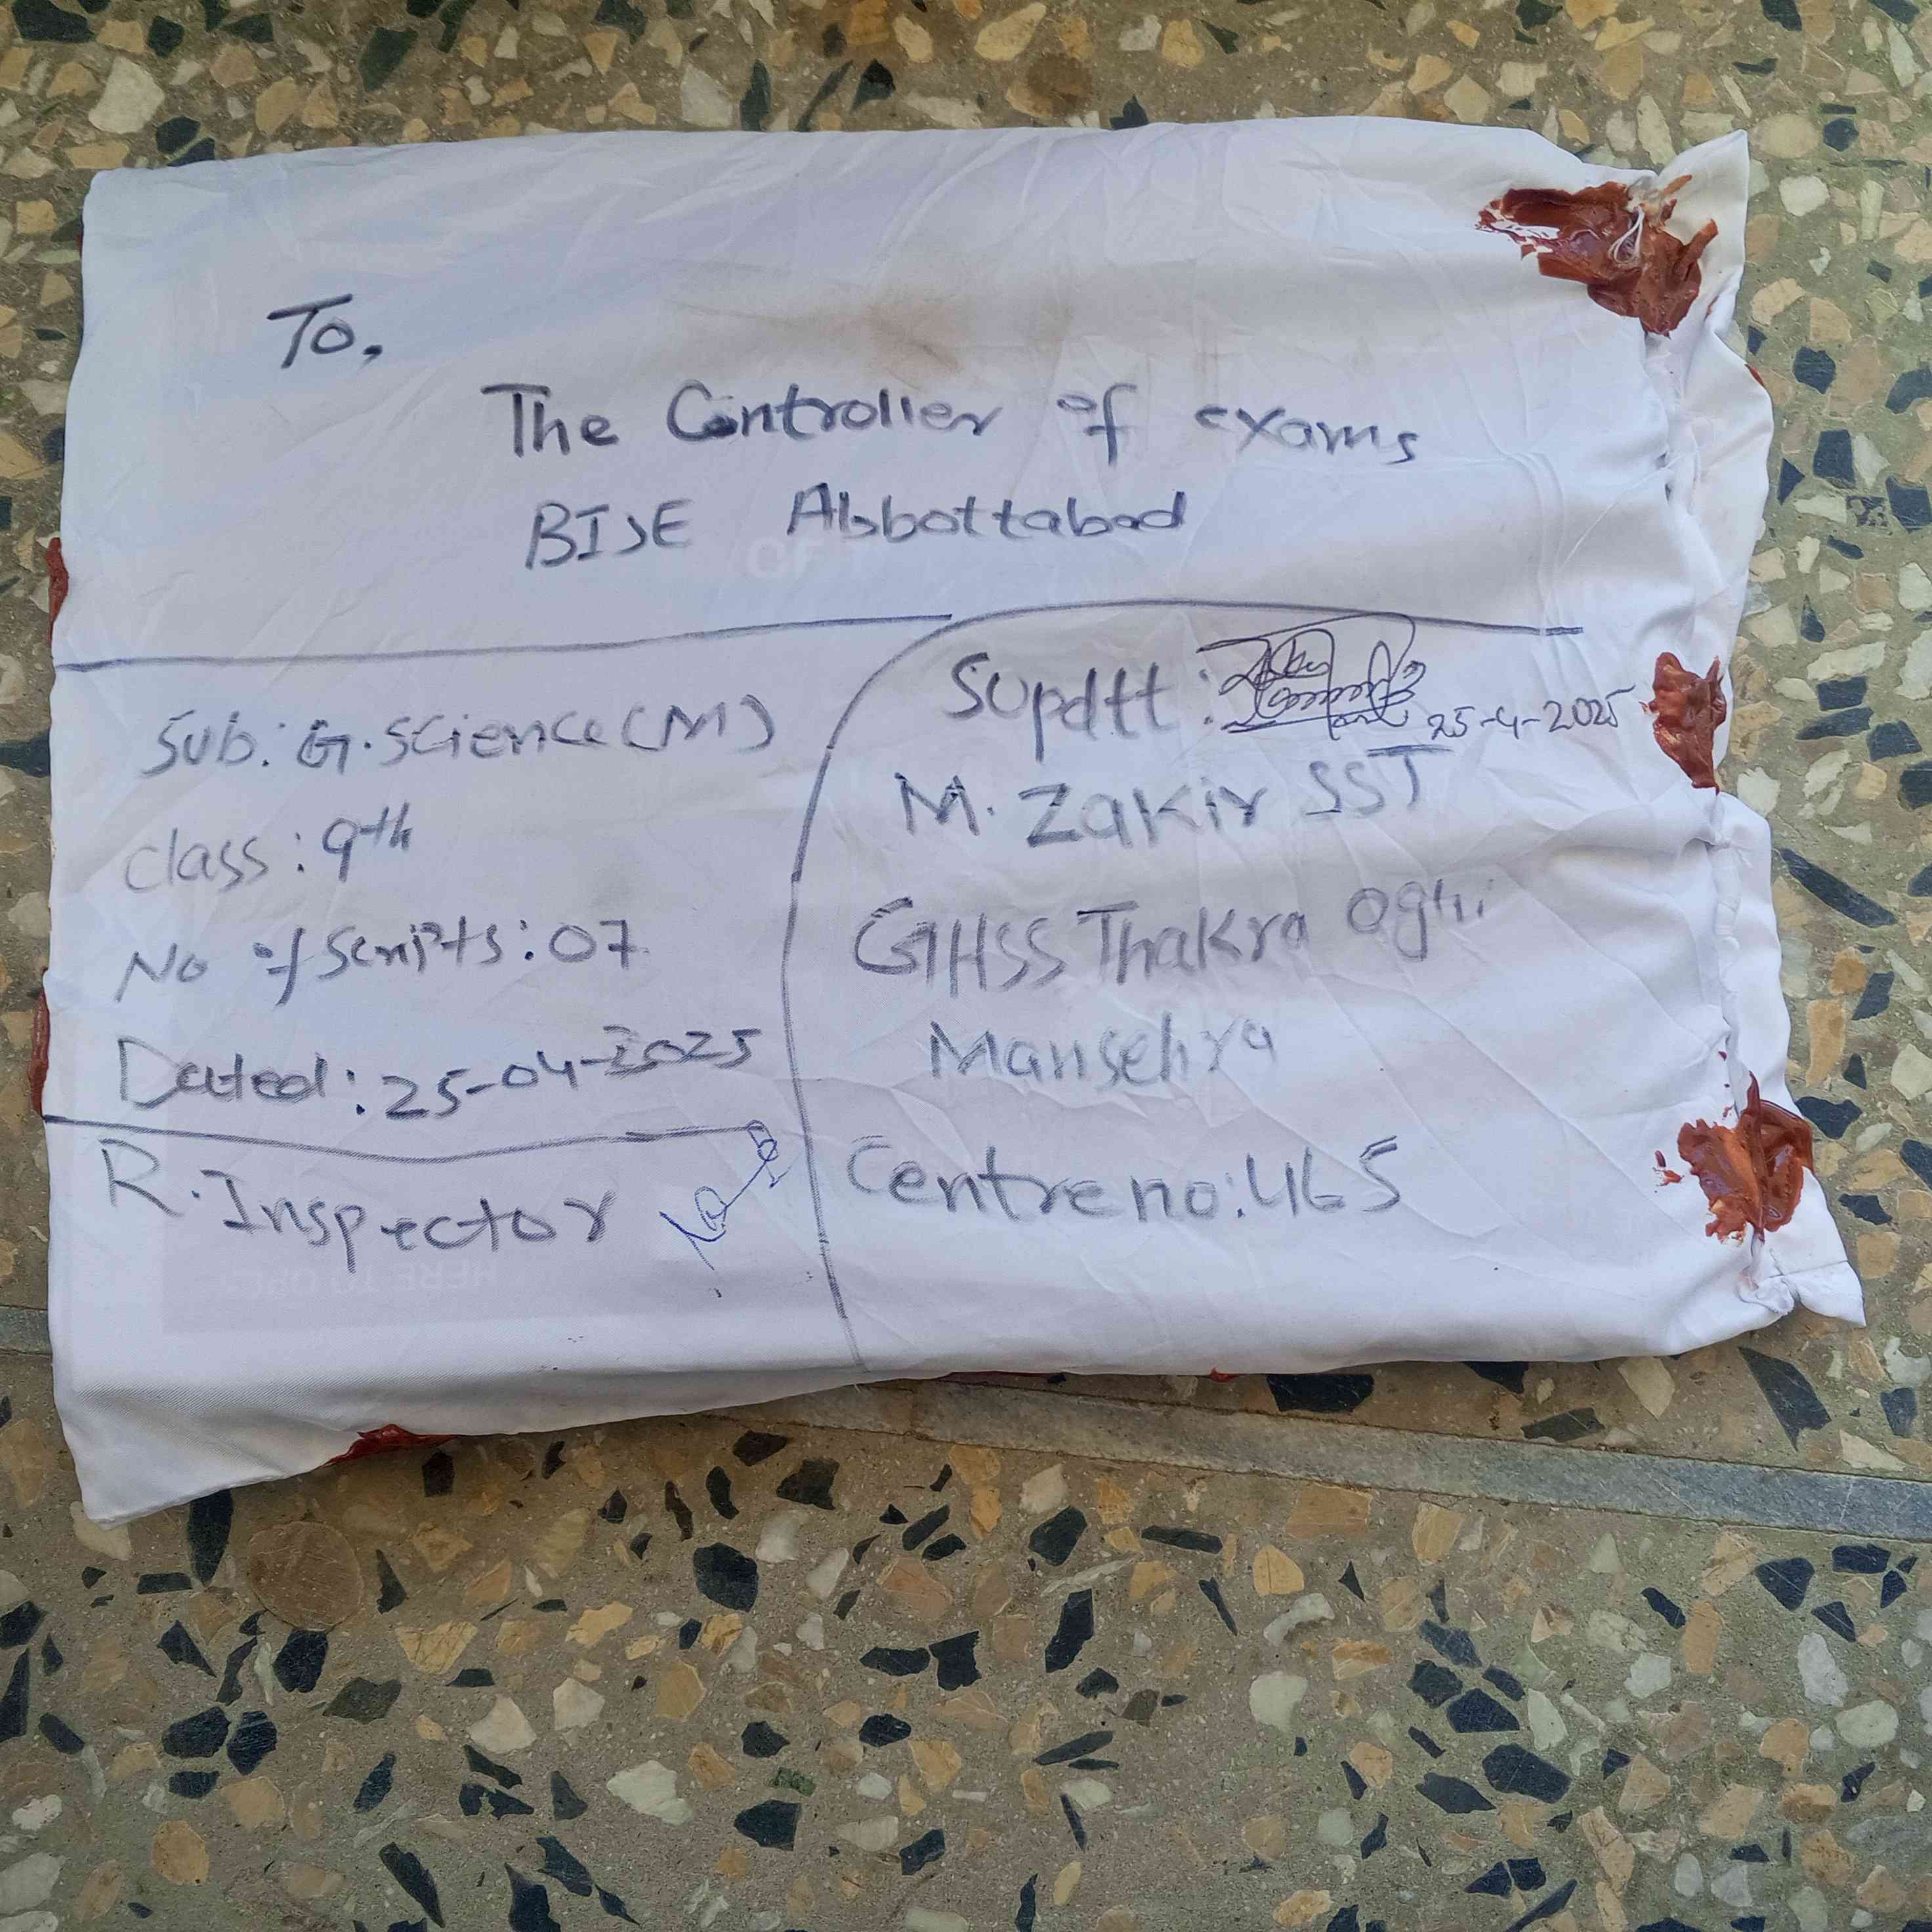 To,
The Controller of exams
BISE Abbottabad
Sub: G.Science (M)
class: 9th
No of Scripts: 07
Dated: 25-04-2025
R. Inspector
Supdtt: 25-4-2025
M. Zakir SST
GHSS Thakra Oghi
Mansehra
Centre no: 465
OF
HERE TO OPE